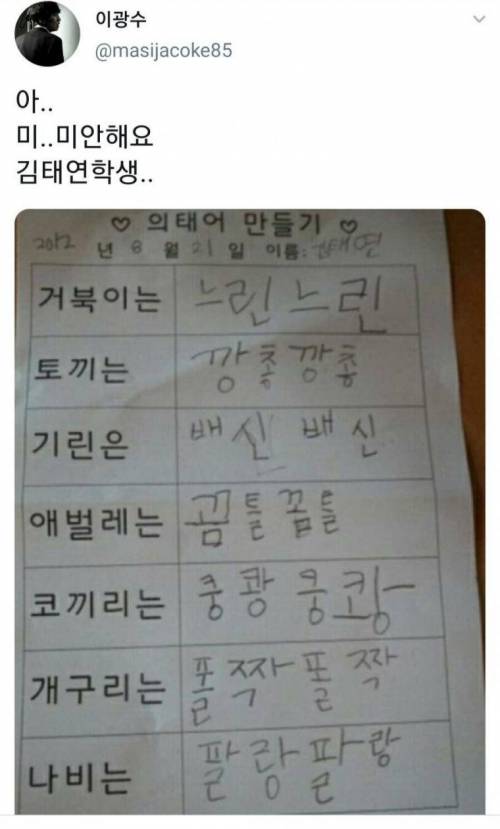 이광수
@masijacoke85
아..
미..미안해요
김태연학생..
♡ 의태어 만들기 ♡
2012년 8월 21일 이름: 김태연
거북이는 느린느린
토끼는 깡총깡총
기린은 배신 배신
애벌레는 꿈틀꿈틀
코끼리는 쿵쾅쿵쾅
개구리는 폴짝폴짝
나비는 팔랑팔랑